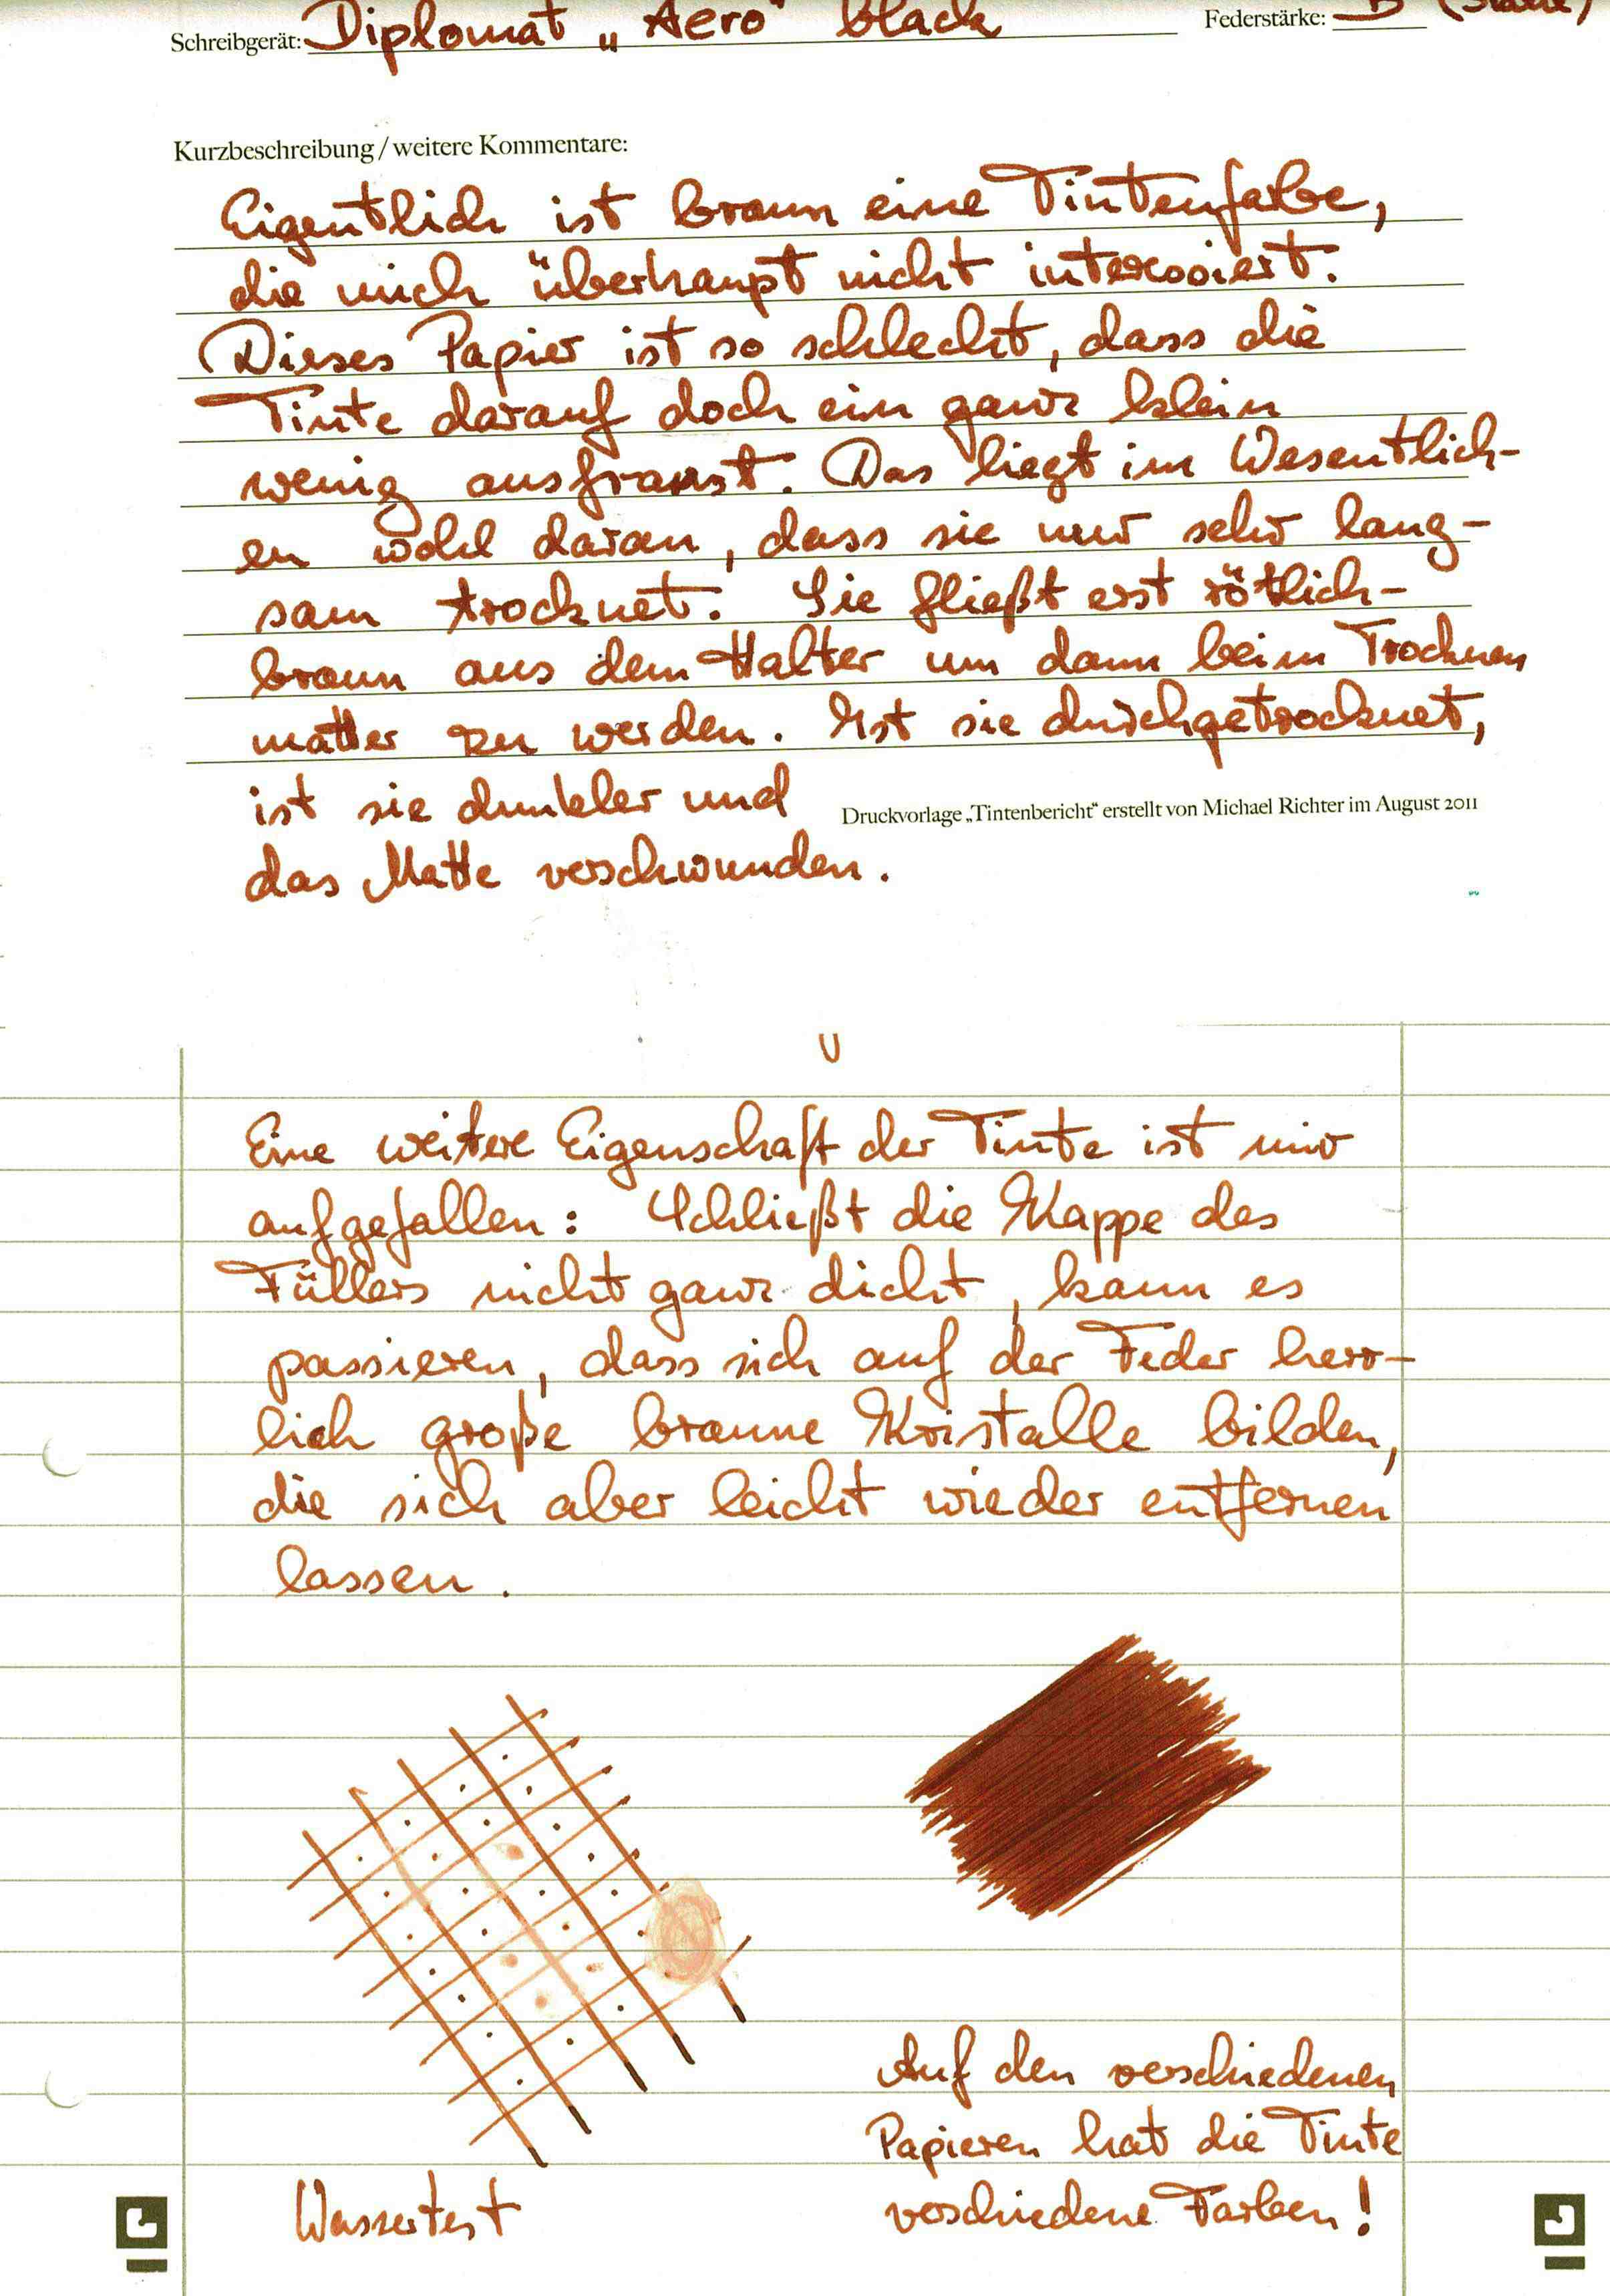 Schreibgerät: Diplomat „Aero“ black Federstärke: B
Kurzbeschreibung / weitere Kommentare:
Eigentlich ist braun eine Tintenfarbe,
die mich überhaupt nicht interessiert.
Dieses Papier ist so schlecht, dass die
Tinte darauf doch ein ganz klein
wenig ausfranst. Das liegt im Wesentlich-
en wohl daran, dass sie nur sehr lang-
sam trocknet. Sie fließt erst rötlich-
braun aus dem Halter um dann beim Trocknen
matter zu werden. Ist sie durchgetrocknet,
ist sie dunkler und
Druckvorlage „Tintenbericht“ erstellt von Michael Richter im August 2011
das Matte verschwunden.
Eine weitere Eigenschaft der Tinte ist mir
aufgefallen: Schließt die Kappe des
Füllers nicht ganz dicht, kann es
passieren, dass sich auf der Feder herr-
lich große braune Kristalle bilden,
die sich aber leicht wieder entfernen
lassen.
Auf den verschiedenen
Papieren hat die Tinte
verschiedene Farben!
Wassertest